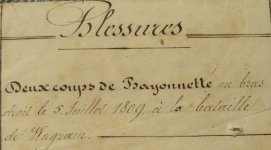 Blessures
Deux coups de Bayonnette au bras
droit le 5 Juillet 1809 à la bataille
de Wagram.